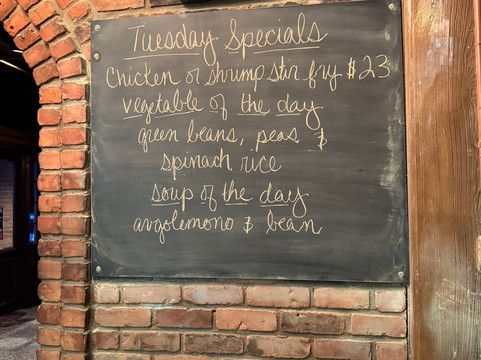 Tuesday Specials
Chicken or shrimp stir fry $23
vegetable of the day
green beans, peas &
spinach rice
soup of the day
avgolemono & bean